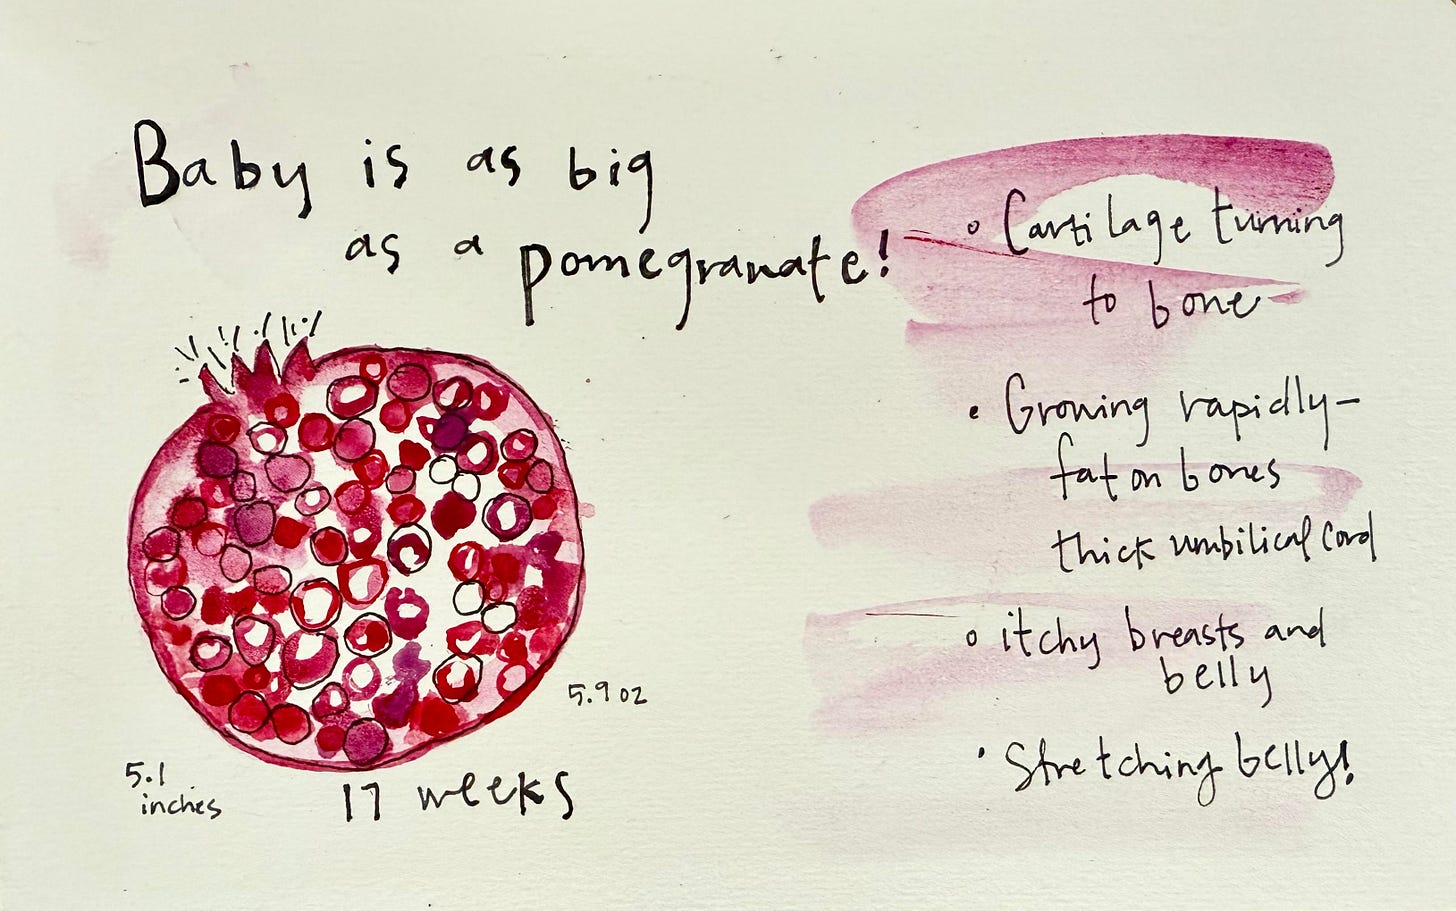 Baby is as big
as a pomegranate!
5.9 oz
5.1
inches
17 weeks
Cartilage turning
to bone
Growing rapidly-
fat on bones
thick umbilical cord
itchy breasts and
belly
Stretching belly!